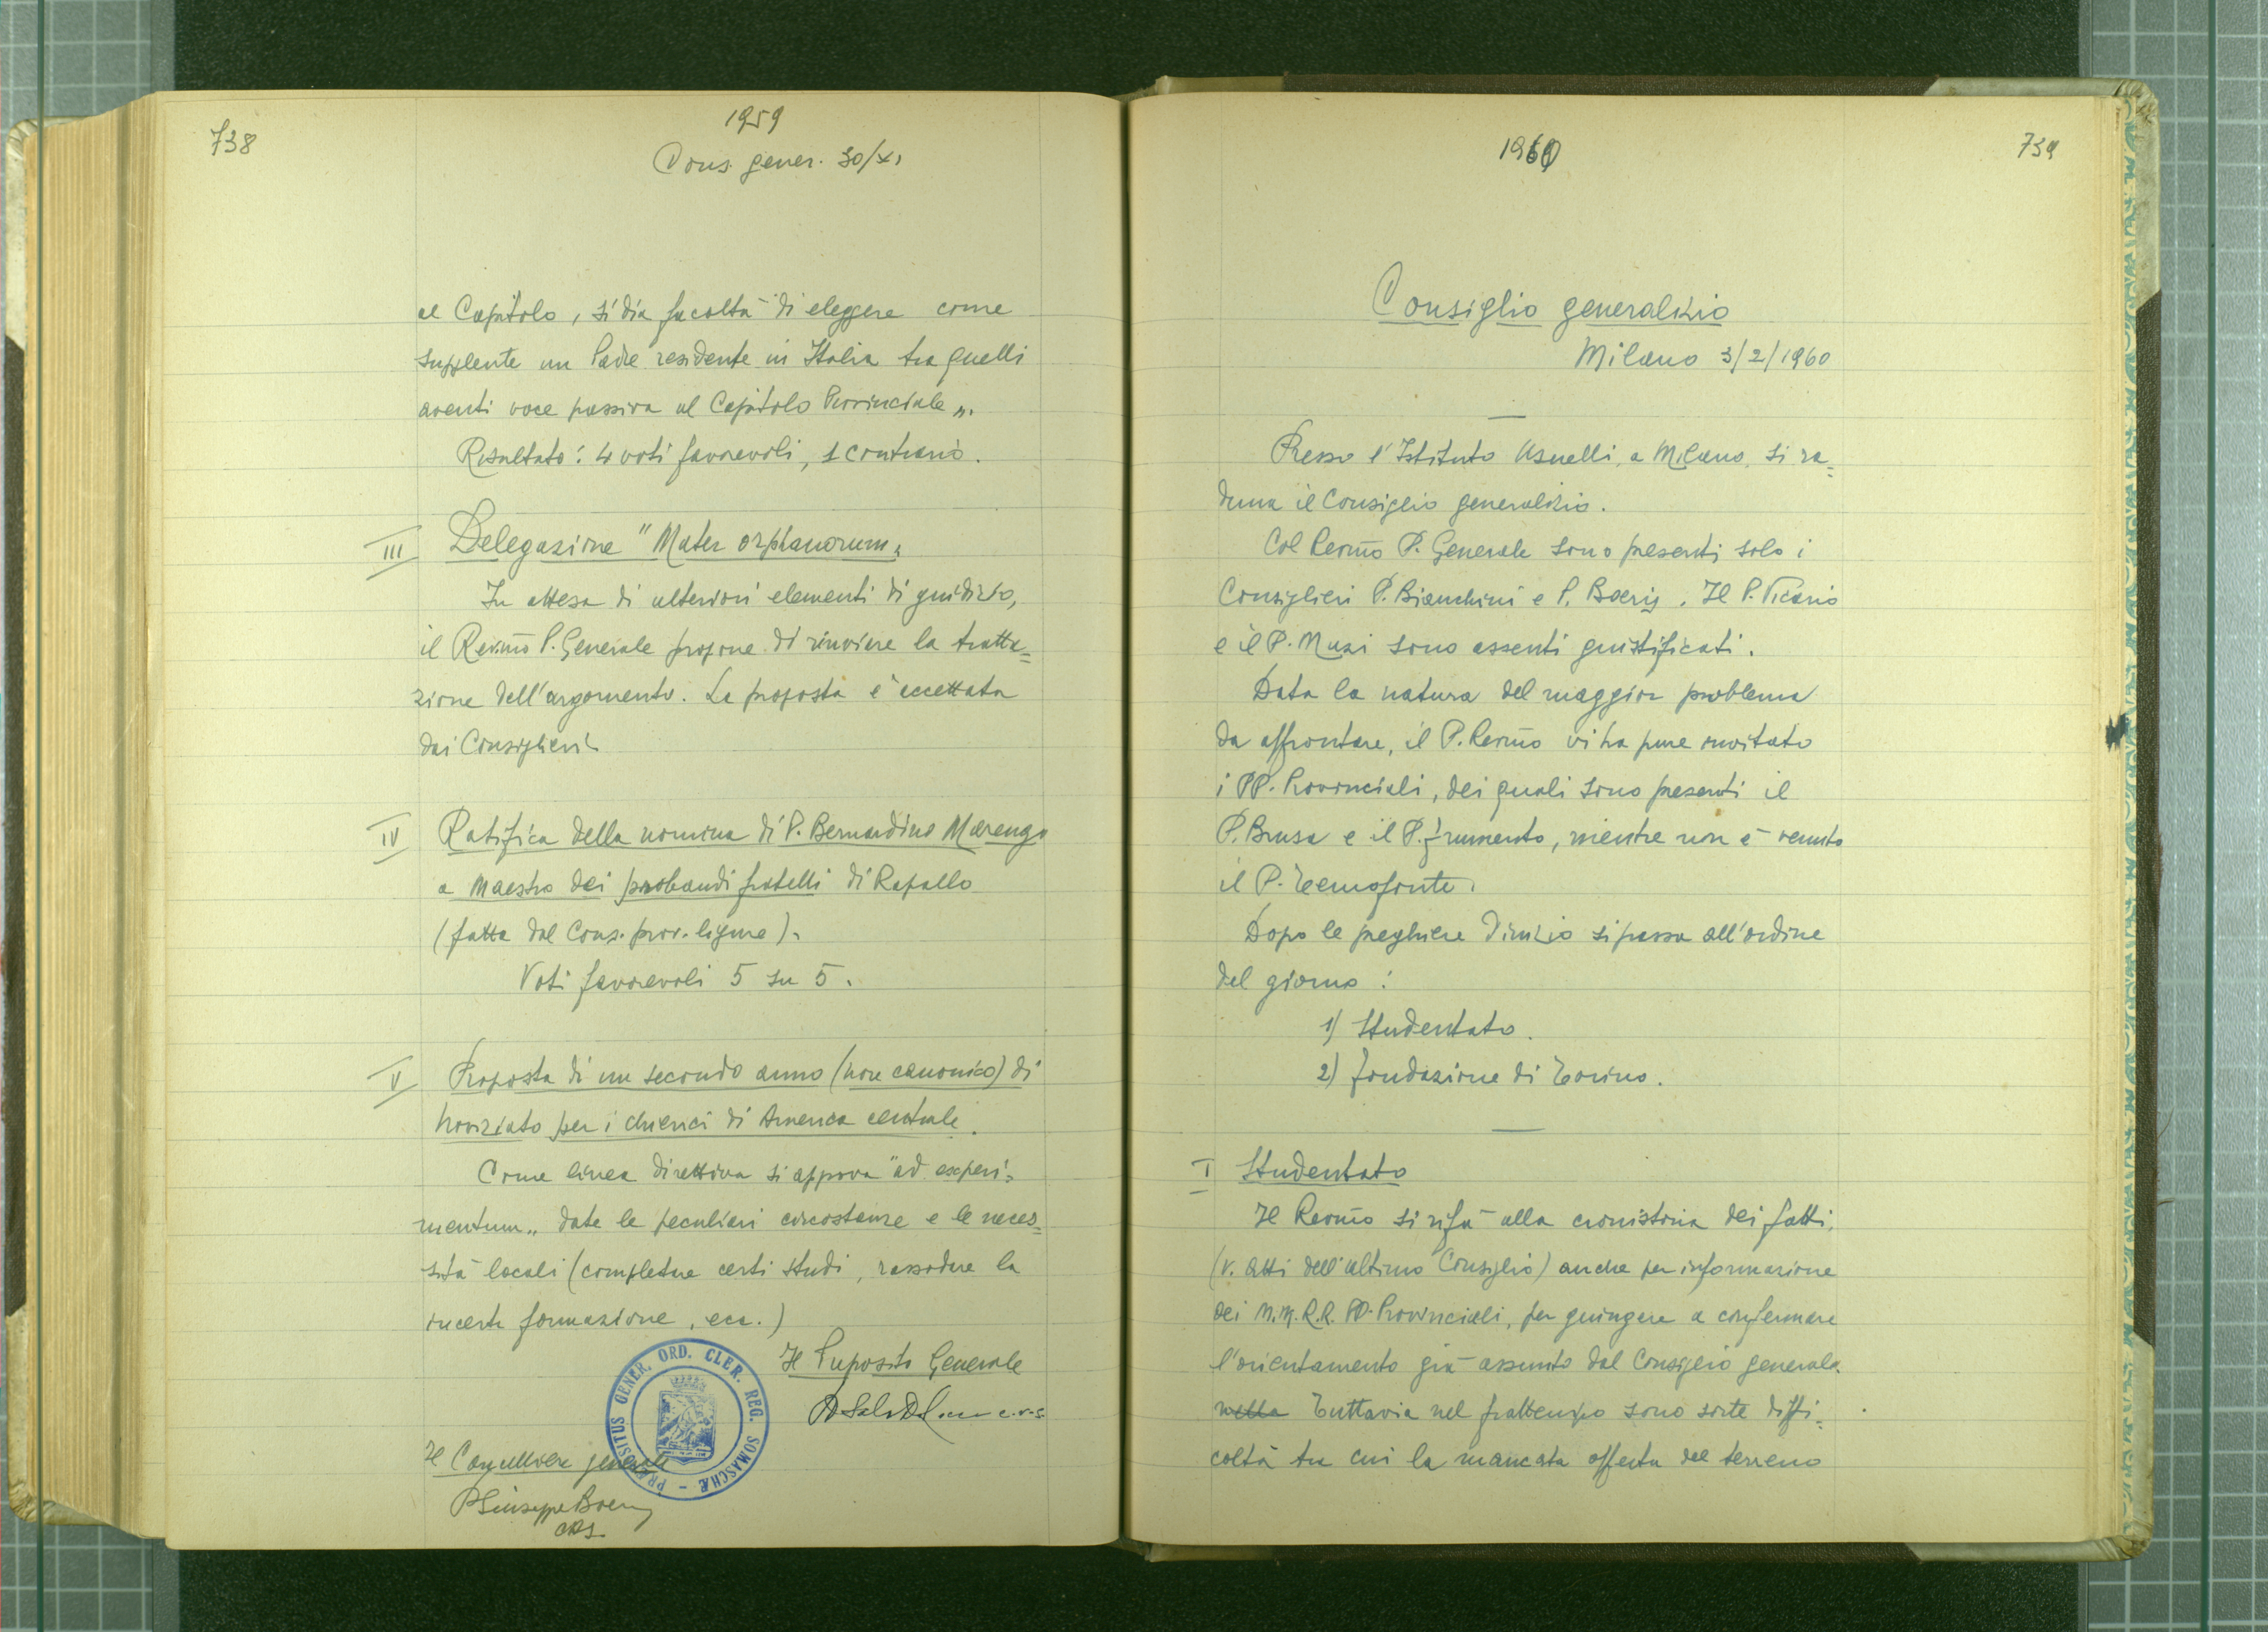 738
1959
Cons. gener. 30/XI
al Capitolo, si dia facoltà di eleggere come
supplente un Padre residente in Italia tra quelli
aventi voce passiva al Capitolo Provinciale „.
Risultato: 4 voti favorevoli, 1 contrario.
III Delegazione "Mater orphanorum„
In attesa di ulteriori elementi di giudizio,
il Rev.mo P. Generale propone di rinviare la tratta=
zione dell'argomento. La proposta è accettata
dai Consiglieri.
IV Ratifica della nomina di P. Bernardino Marengo
a Maestro dei probandi fratelli di Rapallo
(fatta dal Cons. prov. ligure).
Voti favorevoli 5 su 5.
V Proposta di un secondo anno (non canonico) di
noviziato per i chierici di America centrale.
Come linea direttiva si approva "ad experi=
mentum„ date le peculiari circostanze e le neces=
sità locali (completare certi studi, rassodare la
incerta formazione, ecc.)
Il Preposito Generale
c.r.s.
PRAEPOSITUS GENER. ORD. CLER. REG. SOMASCHÆ
Il Cancelliere generale
P Giuseppe Boeris
CRS
1960
739
Consiglio generalizio
Milano 3/2/1960
Presso l'Istituto Usuelli, a Milano, si ra=
duna il Consiglio generalizio.
Col Rev.mo P. Generale sono presenti solo i
Consiglieri P. Bianchini e P. Boeris. Il P. Vicario
e il P. Muzi sono assenti giustificati.
Data la natura del maggior problema
da affrontare, il P. Rev.mo vi ha pure invitato
i PP. Provinciali, dei quali sono presenti il
P. Brusa e il P. Frumento, mentre non è venuto
il P. Temofonte.
Dopo le preghiere d'inizio si passa all'ordine
del giorno:
1) Studentato.
2) Fondazione di Torino.
I Studentato
Il Rev.mo si rifà alla cronistoria dei fatti,
(v. Atti dell'ultimo Consiglio) anche per informazione
dei M.M.R.R. PP. Provinciali, per giungere a confermare
l'orientamento già assunto dal Consiglio generale.
nella Tuttavia nel frattempo sono sorte diffi=
coltà tra cui la mancata offerta del terreno